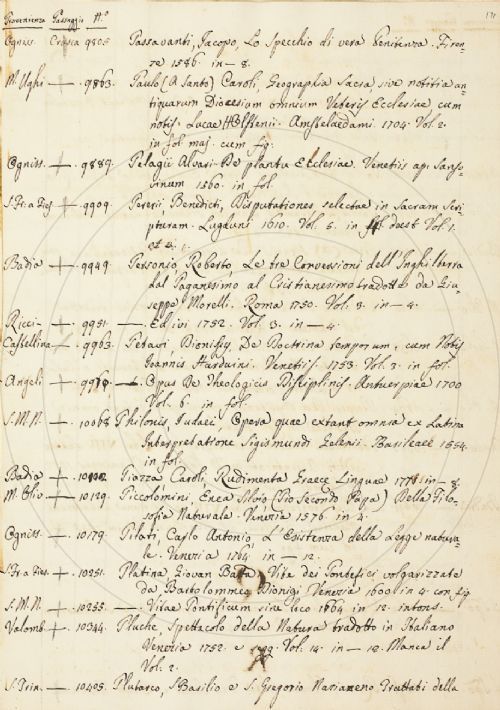 Provenienza Passaggio N.o
Ogniss. Crusca 9805. Passavanti, Jacopo, Lo Specchio di vera Penitenza. Firen-
ze 1586. in — 8.
M. Ughi + 9863. Paulo (A Santo) Caroli, Geographia Sacra, sive notitia an-
tiquarum Diocesium omnium Veteris Ecclesiae cum
notis Lucae Holstenii. Amstelaedami 1704. Vol. 2.
in fol. maj. cum fig.
Ogniss. + 9889. Pelagii Alvari De planctu Ecclesiae. Venetiis ap. Sanso-
vinum 1560. in fol.
+ 9909. Pererii, Benedicti, Disputationes selectae in Sacram Scri-
pturam. Lugduni 1610. Vol. 5. in deest Vol. 1.
et
Badia + 9949. Personio, Roberto, Le tre Conversioni dell'Inghilterra
dal Paganesimo al Cristianesimo tradotte da Giu-
seppe Morelli. Roma 1750. Vol. 3. in — 4.
Ricci — + 9951. — Ed ivi 1752. Vol. 3. in — 4.
Castellina + 9963. Petavii Dionisii, De Doctrina temporum, cum Notis
Joannis Harduini. Venetiis. 1753. Vol. 3. in fol.
Angeli + — Opus De Theologicis Disciplinis. Antuerpiae 1700
Vol. 6. in fol.
S. M. N. + 10068 Philonis Judaei, Opera quae extant omnia ex Latina
Interpretatione Sigismundi Gelenii. Basileae 1554.
in fol.
Badia + Piazza Caroli, Rudimenta Graece Linguae in — 8.
M. Oliv + 10129. Piccolomini, Enea Silvio (Pio Secondo Papa) Della Filo-
sofia Naturale. Venezia 1576 in 4.
Ogniss + 10179. Pilati, Carlo Antonio, L'Esistenza della Legge natura-
le. Venezia 1764. in — 12.
+ 10251. Platina Giovan Batta Vite dei Pontefici volgarizzate
da Bartolommeo Dionigi Venezia 1600 in 4. con fig
S. M. N. + 10255. — Vitae Pontificum sine loco 1664 in 12. intons.
Valomb + 10344. Pluche, Spettacolo della Natura tradotto in Italiano
Venezia 1752. e seg. Vol. 14. in — 12. Manca il
Vol. 2.
S. Trin. — 10405. Plutarco, S. Basilio e S. Gregorio Nazianzeno Trattati della